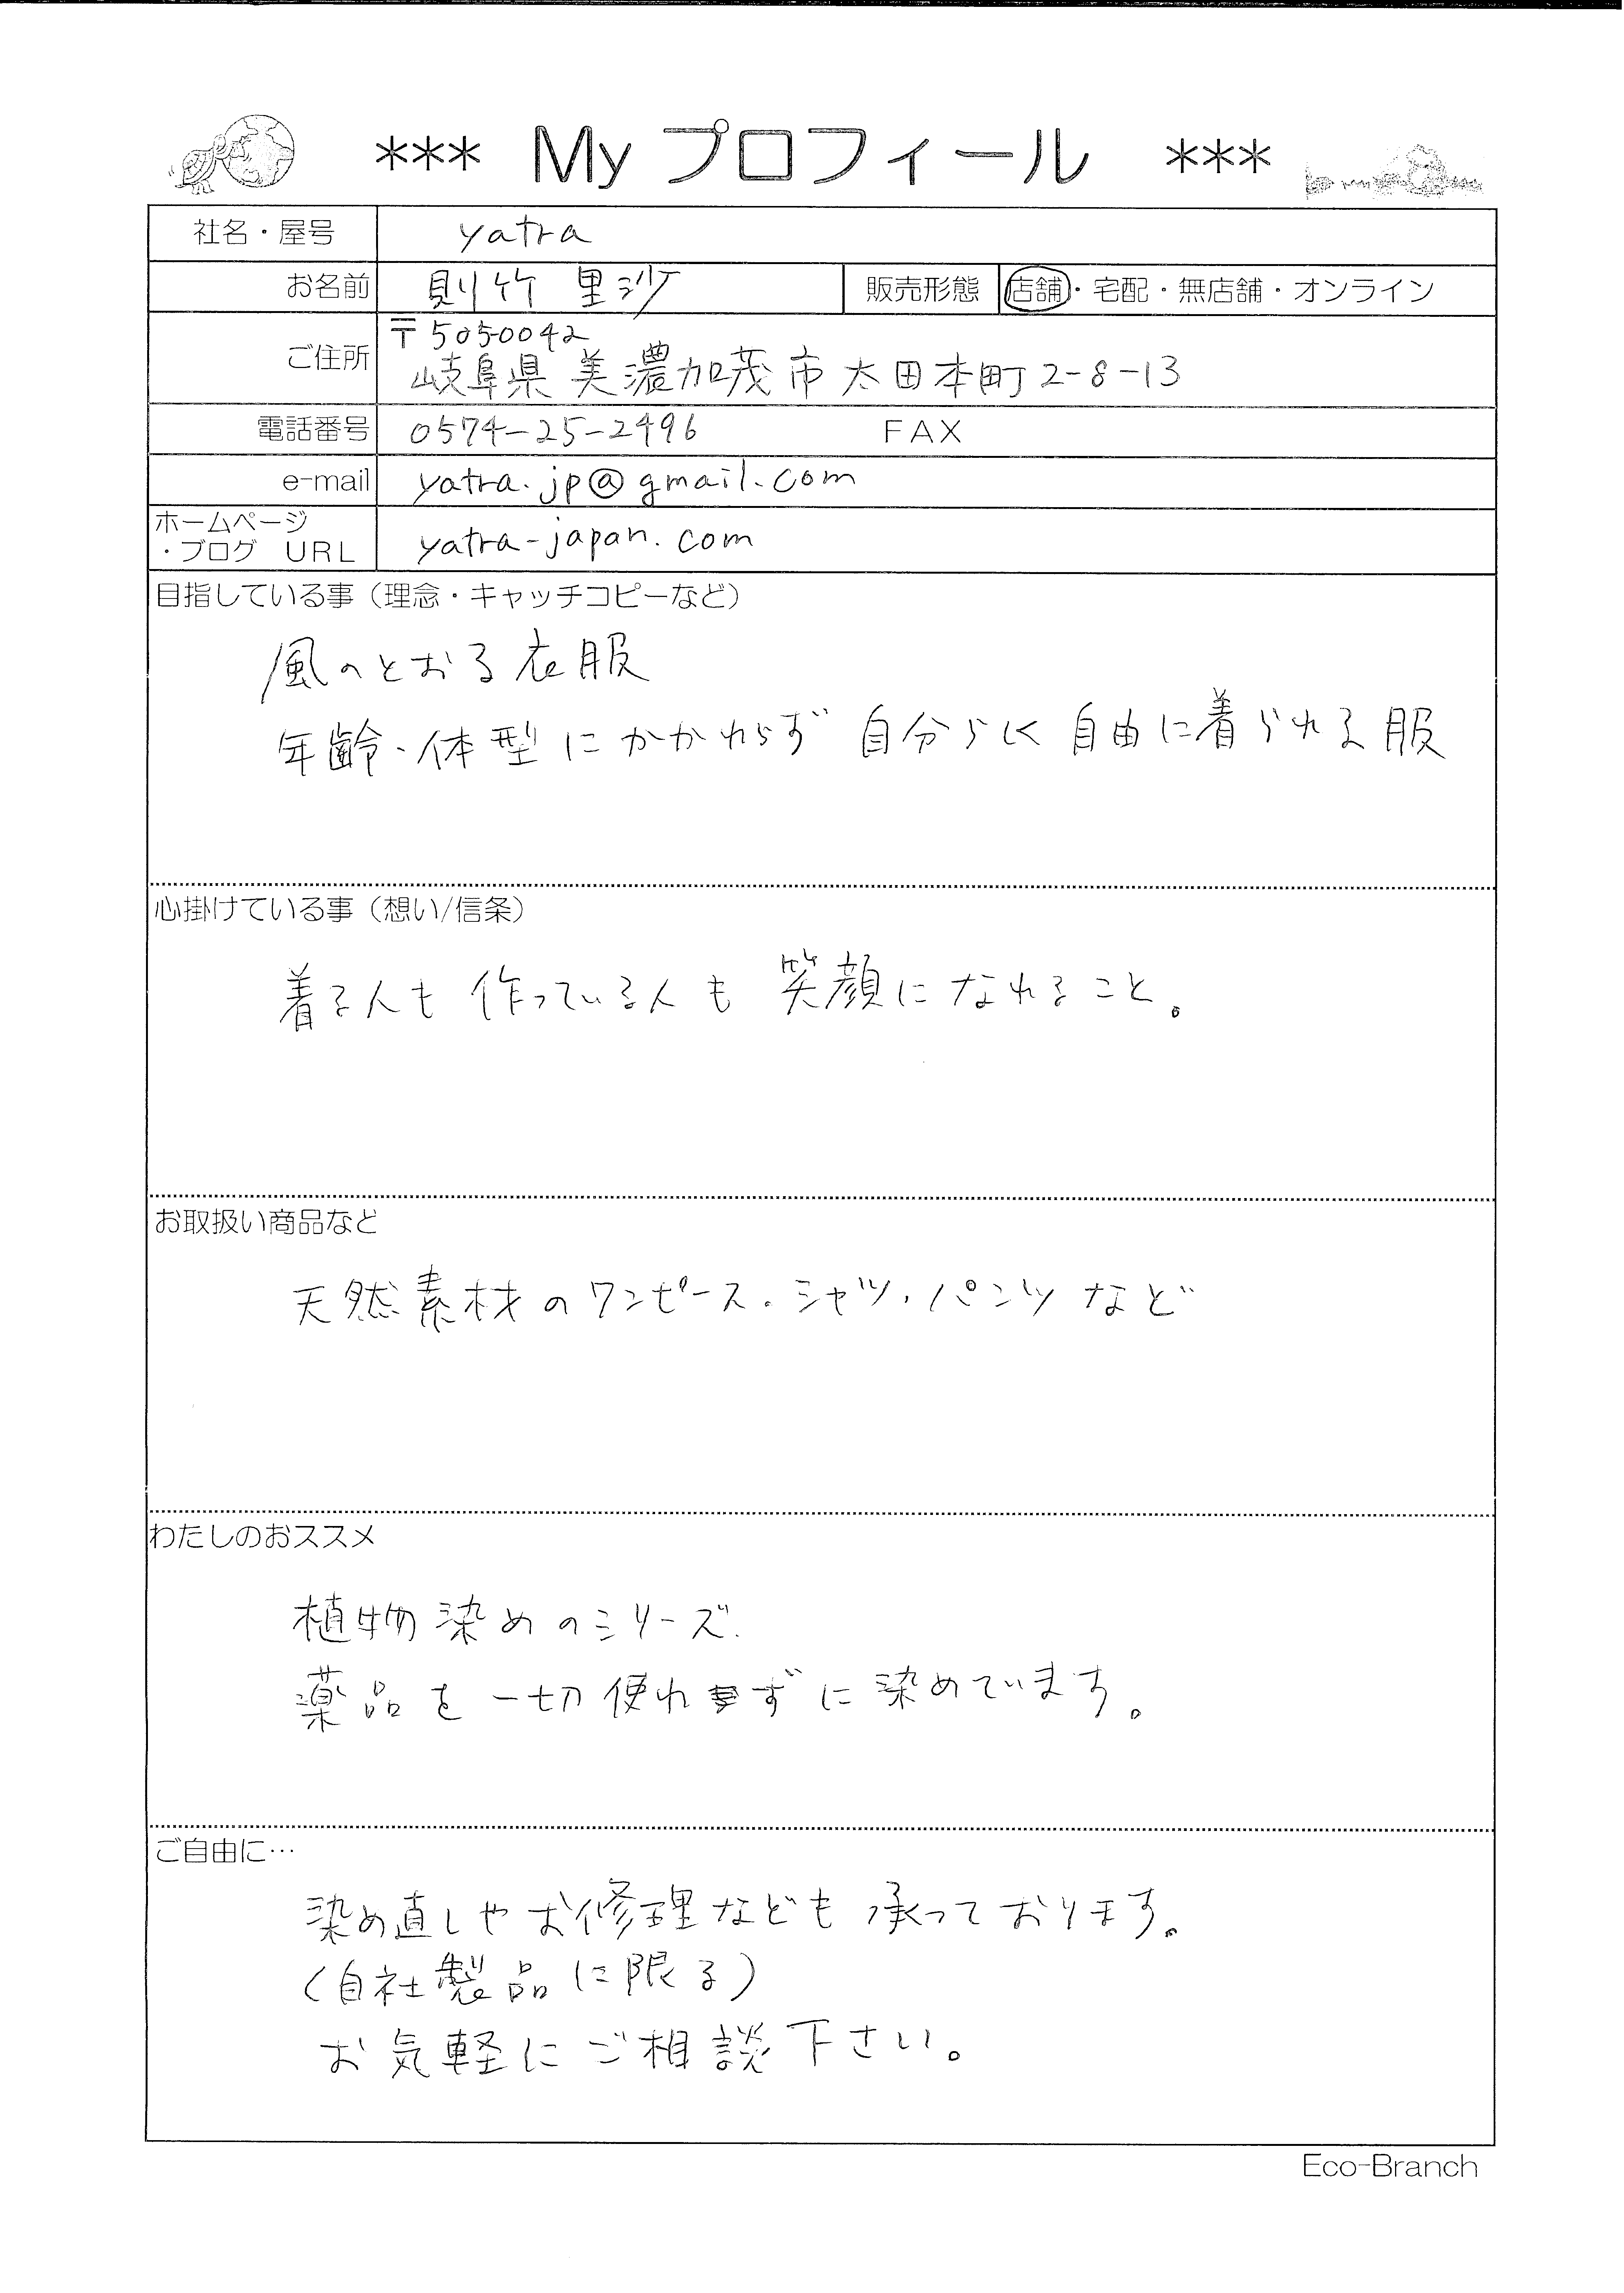 *** My プロフィール ***
社名・屋号 yatra
お名前 則竹 里沙 販売形態 店舗・宅配・無店舗・オンライン
〒5050042
ご住所 岐阜県 美濃加茂市 太田本町2-8-13
電話番号 0574-25-2496 FAX
e-mail yatra.jp@gmail.com
ホームページ
・ブログ URL yatra-japan.com
目指している事（理念・キャッチコピーなど）
風のとおる衣服
年齢・体型にかかわらず 自分らしく 自由に着られる服
心掛けている事（想い/信条）
着る人も 作っている人も 笑顔になれること。
お取扱い商品など
天然素材のワンピース・シャツ・パンツなど
わたしのおススメ
植物染めのシリーズ.
薬品を一切使わずに染めています。
ご自由に…
染め直しやお修理なども承っております。
（自社製品に限る）
お気軽にご相談下さい。
Eco-Branch